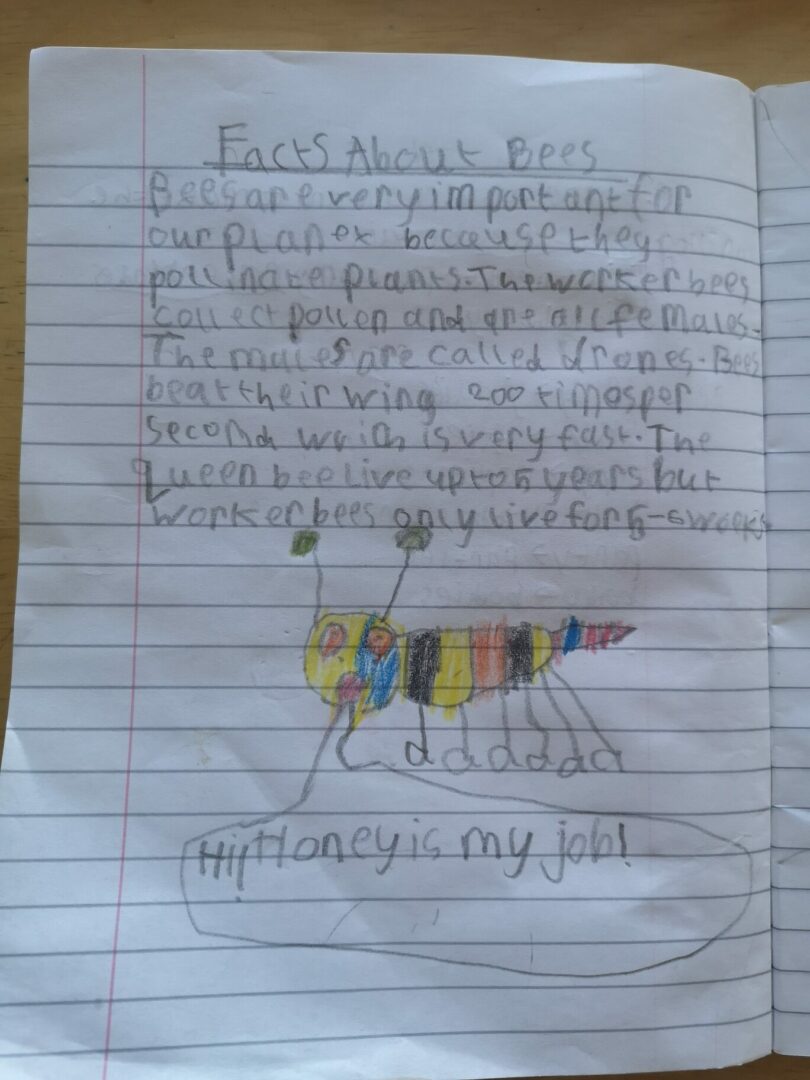 Facts About Bees
Bees are very important for
our planet because they
pollinate plants. The worker bees
collect pollen and are all females.
The males are called drones. Bees
beat their wing 200 timesper
second which is very fast. The
queen bee live up to 5 years but
worker bees only live for 5-6 weeks
Hi! Honey is my job!